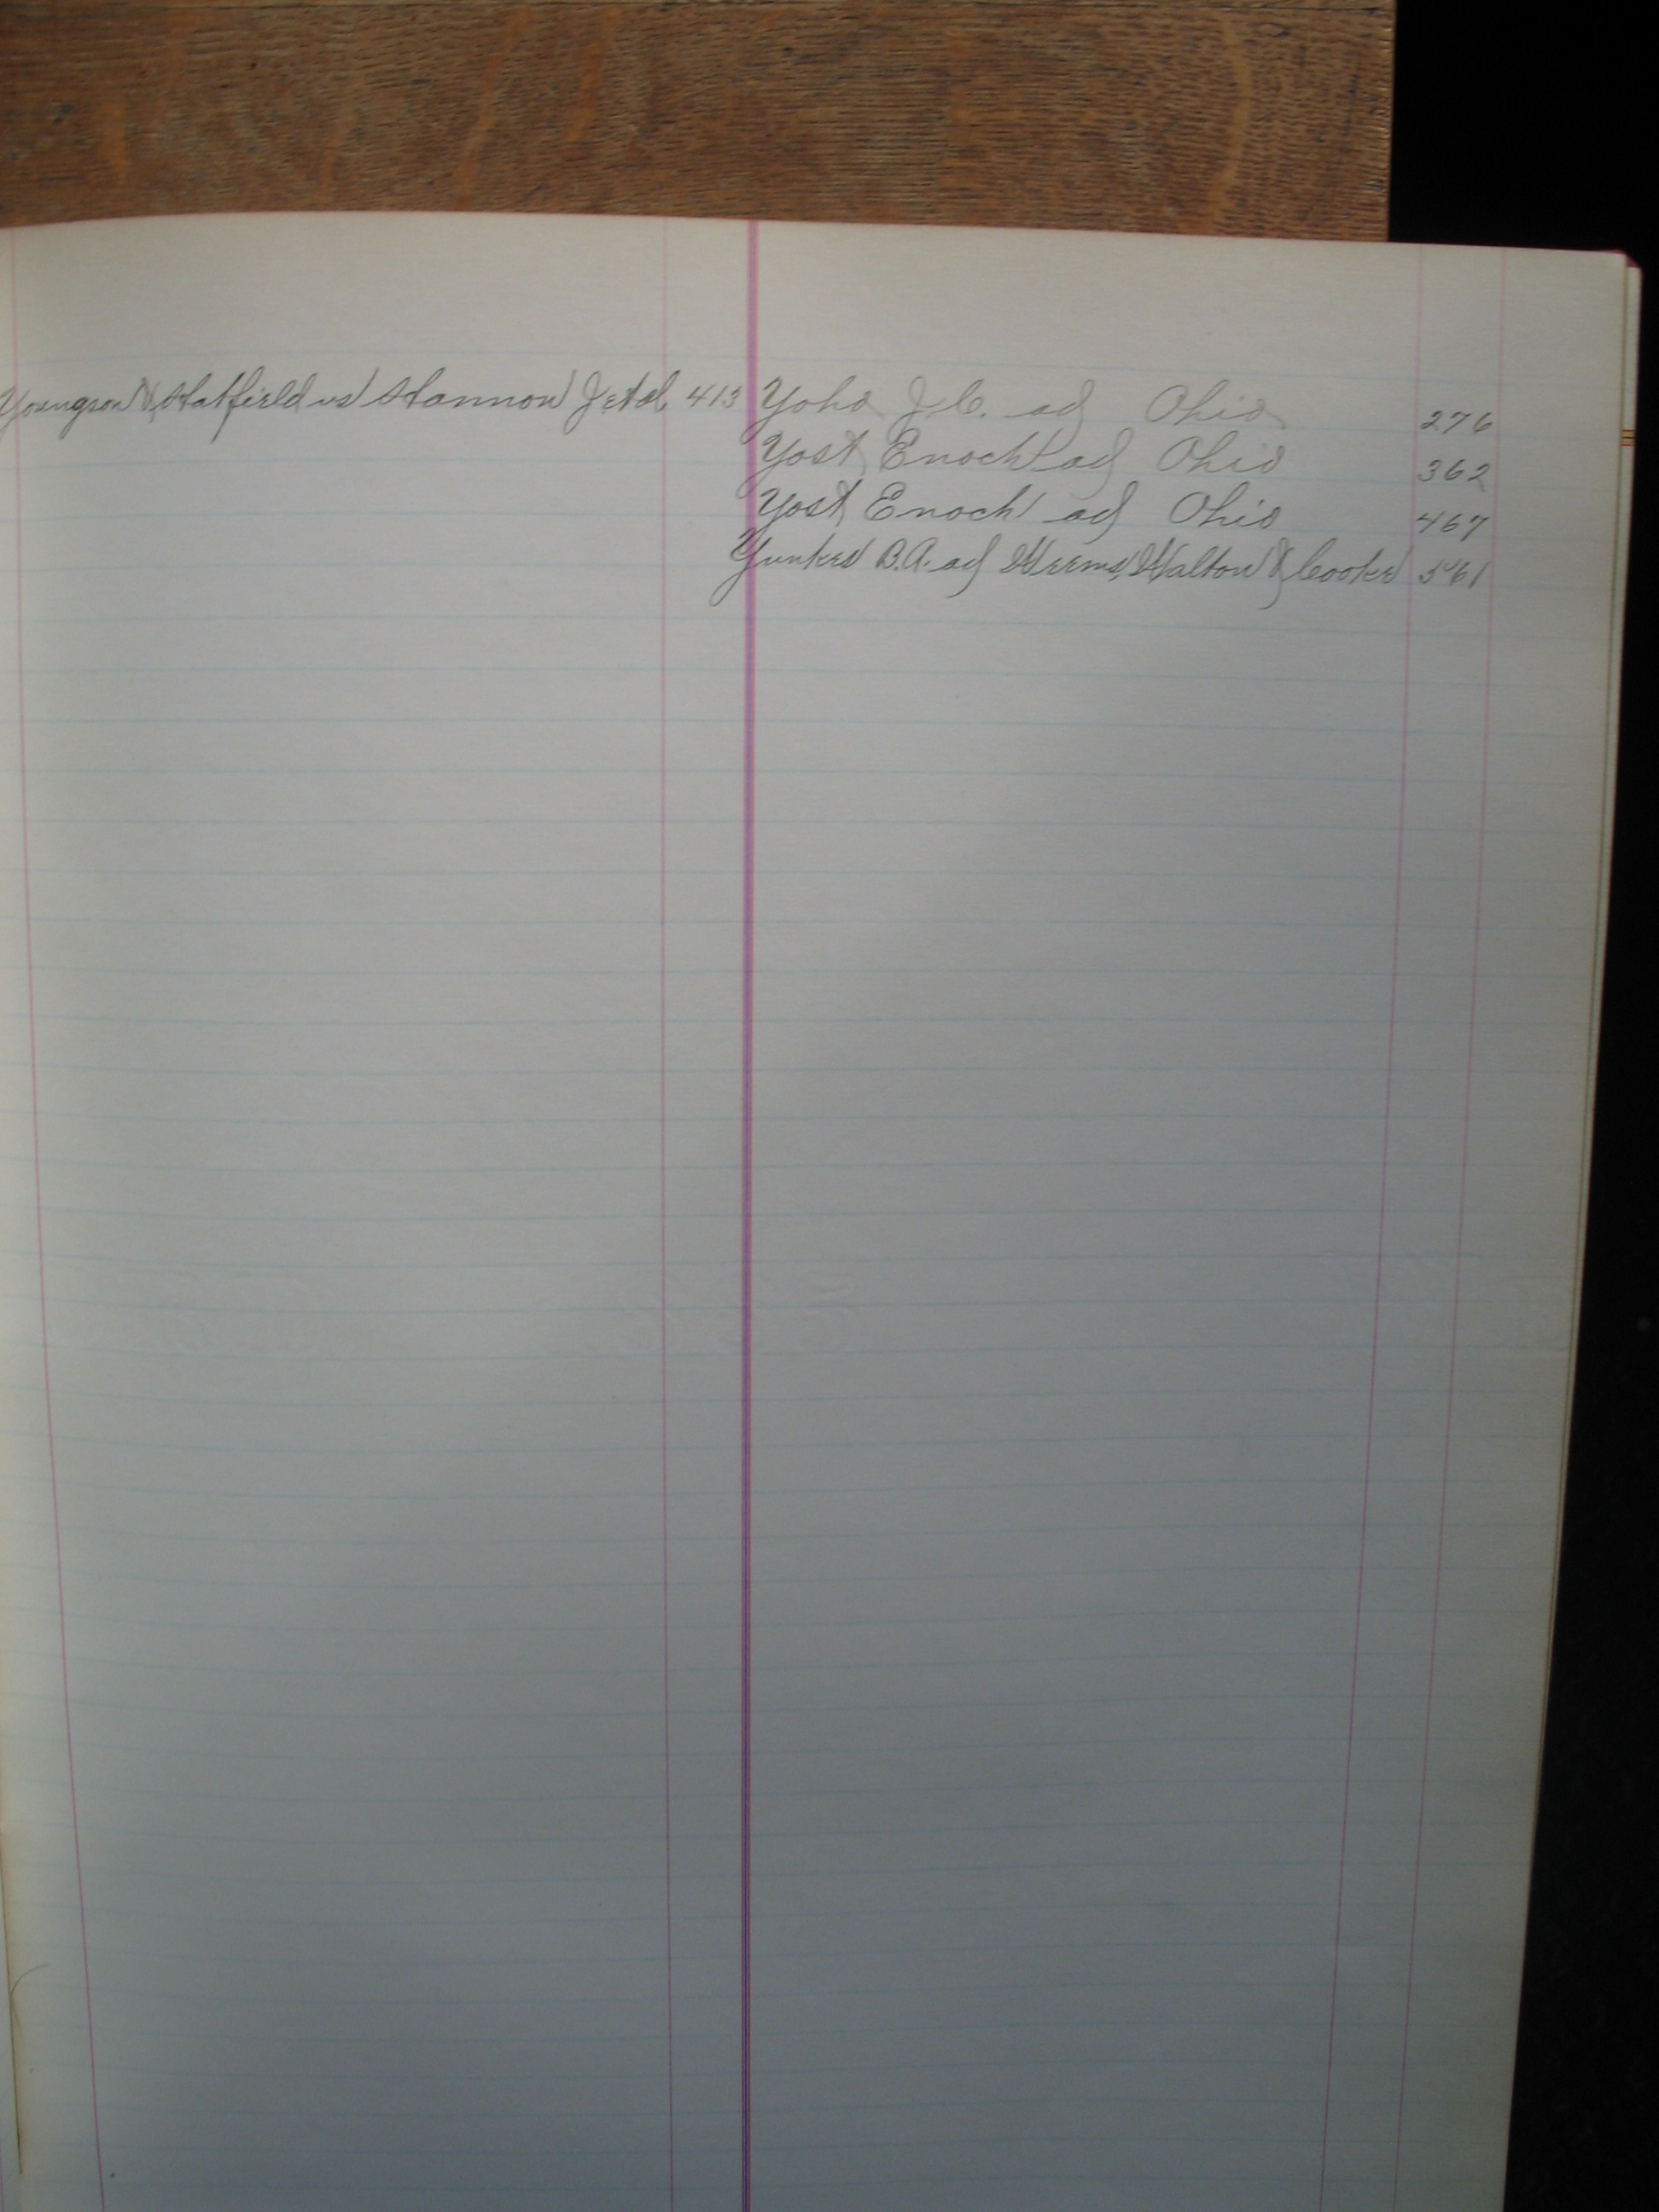 Youngson & Hatfield vs Hannon J et al. 413
Yoho J.C. ad Ohio 276
Yost Enoch ad Ohio 362
Yost Enoch ad Ohio 467
Yunkes B.A. ad Weems, Walton & Cooke 561